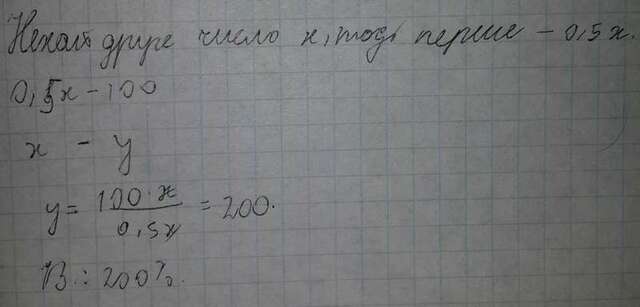 Нехай друге число x, тоді перше - 0,5x.
0,5x - 100
x - y
y = 100·x / 0,5x = 200.
В: 200%.